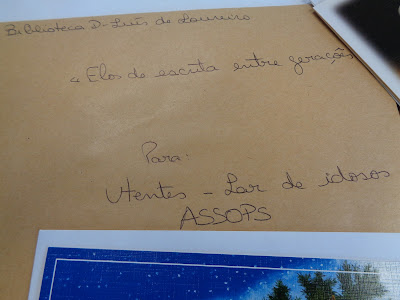 Biblioteca D. Luís de Loureiro
"Elos de escrita entre gerações
Para:
Utentes - Lar de idosos
ASSOPS